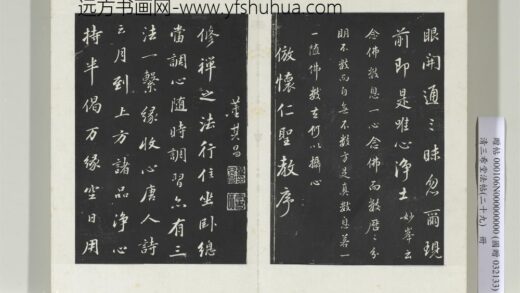 远方书画网-www.yfshuhua.com
眼開通三昧忽爾現
前即是唯心净土 妙峯云
念佛數息一心念佛而數曆曆分
明不數而自無不數方是真數息若一
一隨佛數去何以攝心
倣懷仁聖教序
董其昌
修禪之法行住坐卧總
當調心随時調習亦有三
法一繫緣收心唐人詩
云月到上方諸品净心
持半偈万緣空日用
贈帖 000100N000000000 (國贈 032133)
清三希堂法帖(二十九) 冊